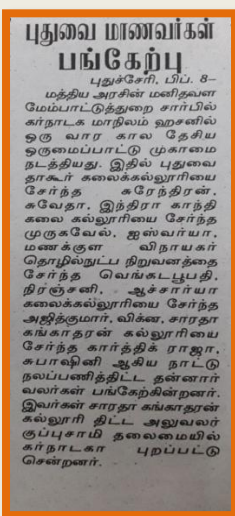 புதுவை மாணவர்கள்
பங்கேற்பு
புதுச்சேரி, பிப். 8–
மத்திய அரசின் மனிதவள
மேம்பாட்டுத்துறை சார்பில்
கர்நாடக மாநிலம் ஹசனில்
ஒரு வார கால தேசிய
ஒருமைப்பாட்டு முகாமை
நடத்தியது. இதில் புதுவை
தாகூர் கலைக்கல்லூரியை
சேர்ந்த சுரேந்திரன்,
சுவேதா, இந்திரா காந்தி
கலை கல்லூரியை சேர்ந்த
முருகவேல், ஐஸ்வர்யா,
மணக்குள விநாயகர்
தொழில்நுட்ப நிறுவனத்தை
சேர்ந்த வெங்கடபூபதி,
நிரஞ்சனி, ஆச்சார்யா
கலைக்கல்லூரியை சேர்ந்த
அஜித்குமார், விக்ன, சாரதா
கங்காதரன் கல்லூரியை
சேர்ந்த கார்த்திக் ராஜா,
சுபாஷினி ஆகிய நாட்டு
நலப்பணித்திட்ட தன்னார்
வலர்கள் பங்கேற்கின்றனர்.
இவர்கள் சாரதா கங்காதரன்
கல்லூரி திட்ட அலுவலர்
குப்புசாமி தலைமையில்
கர்நாடகா புறப்பட்டு
சென்றனர்.